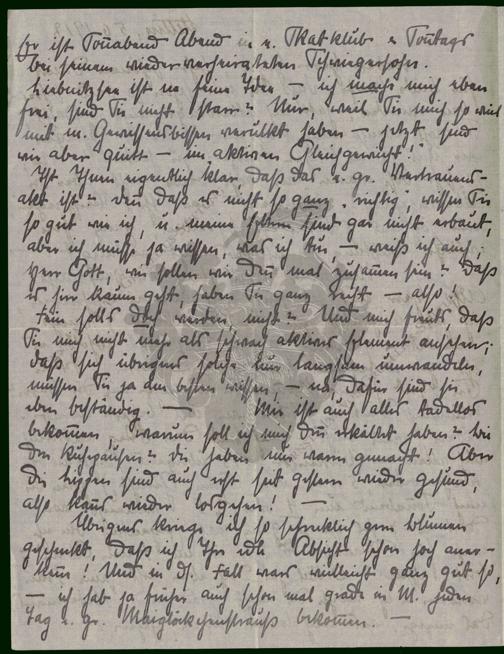 Er ist Sonnabend Abend in e. Skatklub u. Sonntags
bei seinem wiederverheirateten Schwiegersohn.
Liebnitzsee ist na feine Idee – ich mache mich eben
frei, sind Sie nicht starr? Nur, weil Sie mich so viel
mit m. Gewissensbissen verulkt haben – jetzt sind
wir aber quitt – im aktiven Gleichgewicht!
Ist Ihnen eigentlich klar daß das e. gr. Vertrauens-
akt ist? denn daß es nicht so ganz "richtig, wissen Sie
so gut wie ich, u. meine Eltern sind gar nicht erbaut,
aber ich müsse ja wissen, was ich tue, – weiß ich auch;
Herr Gott, wie sollen wir denn mal zusammen sein? Daß
es hier kaum geht, haben Sie ganz recht – also!
Fein solls doch werden, nicht? Und mich freuts, daß
Sie mich nicht mehr als schwach aktives Element ansehen;
daß sich übrigens solche nur langsam umwandeln,
müssen Sie ja am besten wissen, – na, dafür sind sie
eben beständig. — Mir ist auch alles tadellos
bekommen, warum soll ich mich denn erkältet haben? bei
den Kuhpausen? die haben nur warm gemacht! Aber
die Lippen sind auch erst seit gestern wieder gesund,
also kanns wieder losgehen! —
Übrigens kriege ich so schrecklich gern Blumen
geschenkt, daß ich Ihre edle Absicht schon hoch aner-
kenn! Und in ds. Fall wars vielleicht ganz gut so,
– ich hab ja früher auch schon mal grade in M. jeden
Tag e. gr. Maiglöckchenstrauß bekommen. —